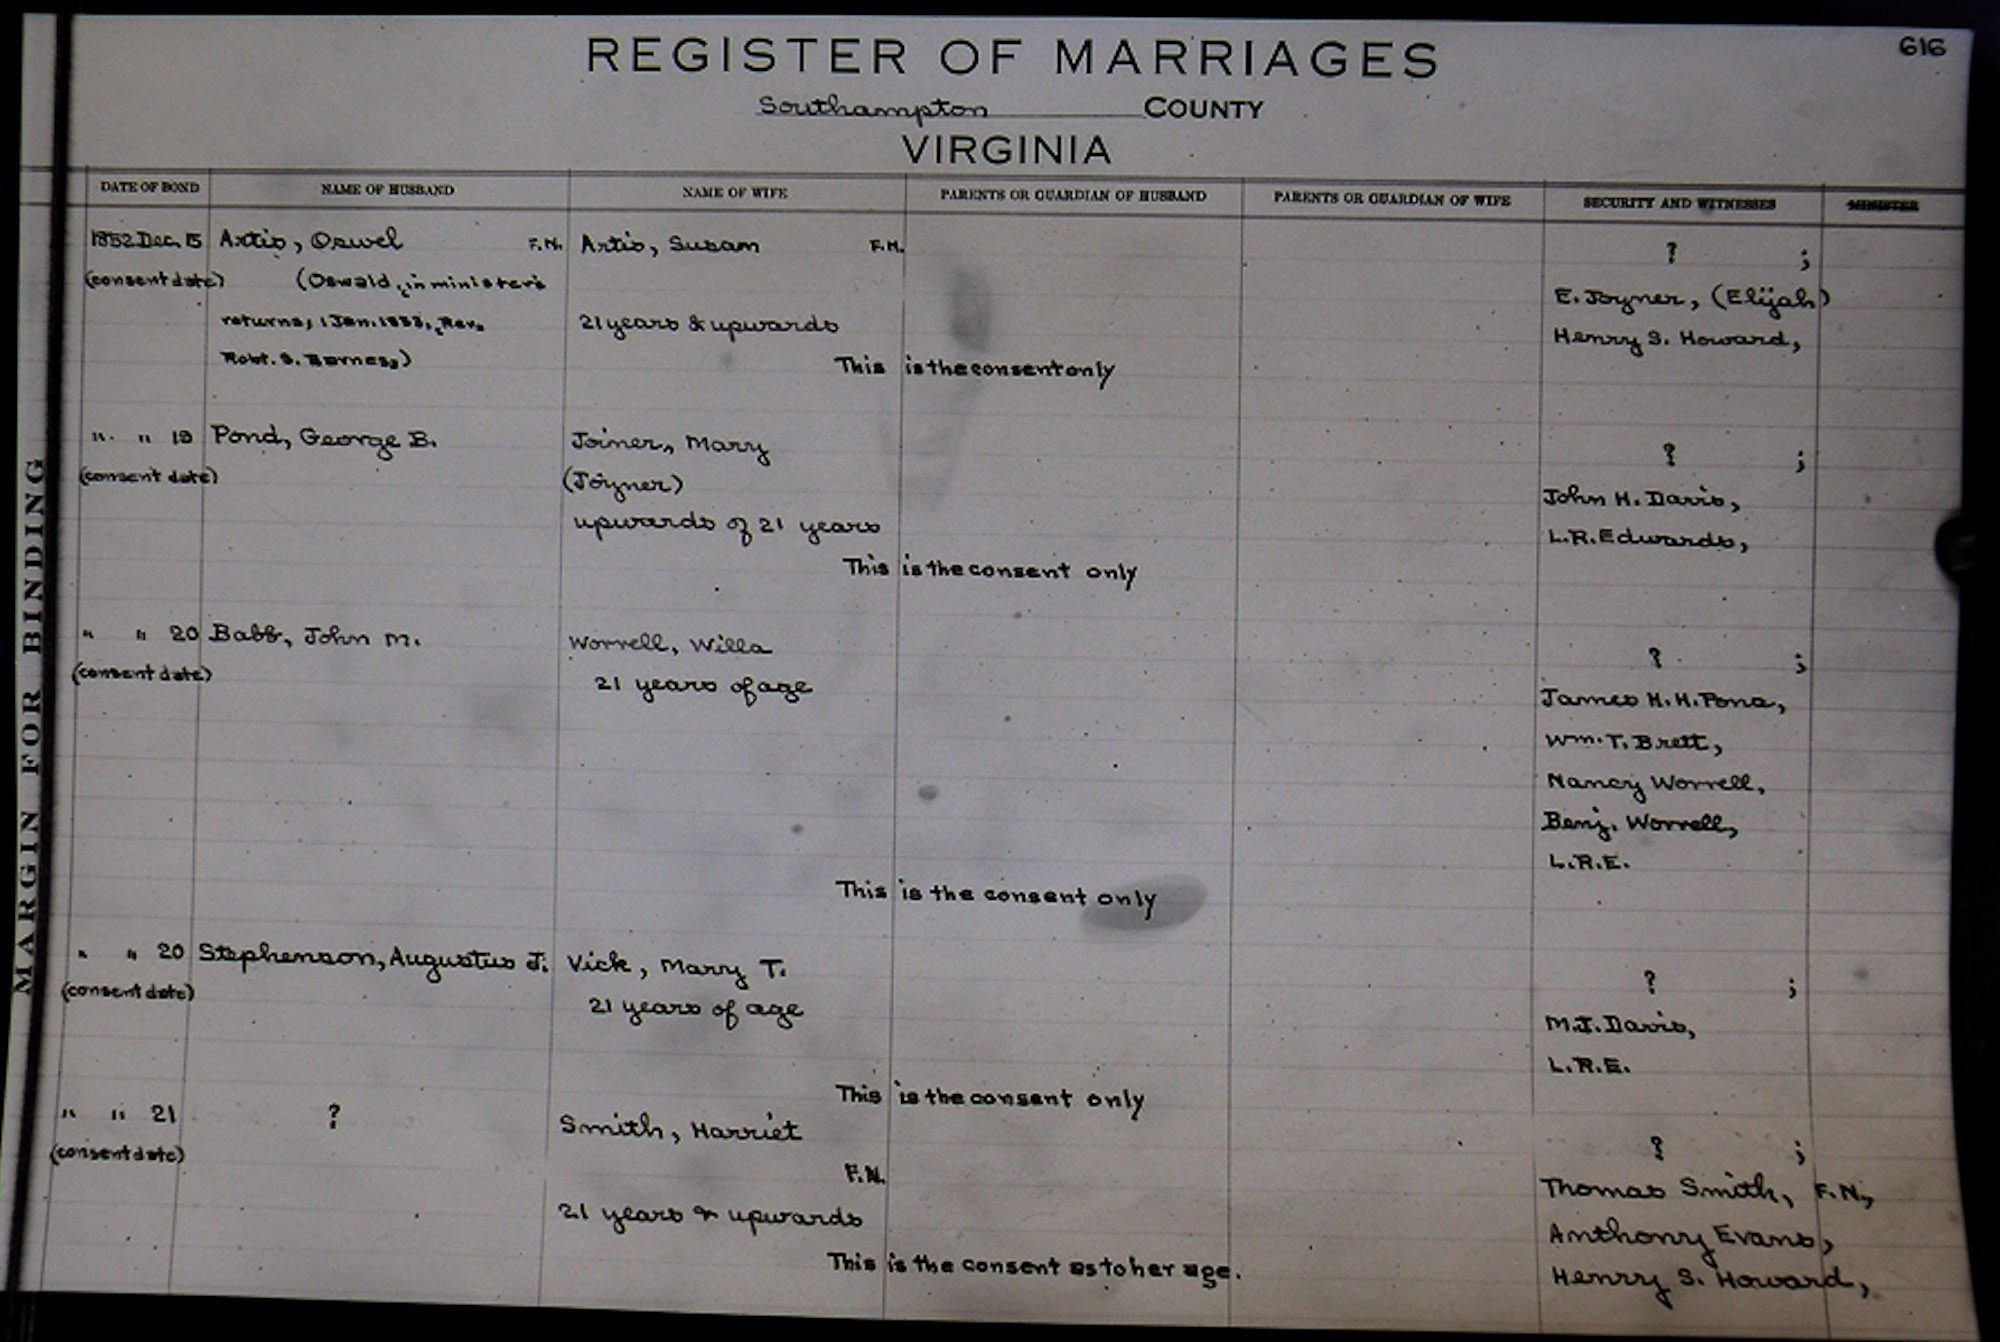 616
REGISTER OF MARRIAGES
Southampton COUNTY
VIRGINIA
DATE OF BOND NAME OF HUSBAND NAME OF WIFE PARENTS OR GUARDIAN OF HUSBAND PARENTS OR GUARDIAN OF WIFE SECURITY AND WITNESSES MINISTER
1852 Dec. 15 Artis, Oswel F.N. Artis, Susan F.N. ? ;
(consent date) (Oswald, in minister's E. Joyner, (Elijah)
returns, 1 Jan. 1853, Rev. 21 years & upwards Henry S. Howard,
Robt. S. Barnes,)
This is the consent only
" " 19 Pond, George B. Joiner, Mary ? ;
(consent date) (Joyner) John H. Davis,
upwards of 21 years L.R. Edwards,
This is the consent only
" " 20 Babb, John M. Worrell, Willa ? ;
(consent date) 21 years of age James H. H. Pond,
Wm. T. Brett,
Nancy Worrell,
Benj. Worrell,
L.R.E.
This is the consent only
" " 20 Stephenson, Augustus J. Vick, Mary T. ? ;
(consent date) 21 years of age M.J. Davis,
L.R.E.
This is the consent only
" " 21 ? Smith, Harriet ? ;
(consent date) F.N. Thomas Smith, F.N.,
21 years & upwards Anthony Evans,
This is the consent as to her age. Henry S. Howard,
MARGIN FOR BINDING